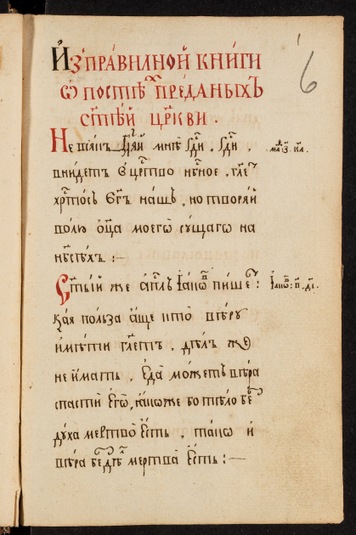 Из̾ пра́вилной кни́ги
ѡ҆ посте́ пре́даныхъ
ст҃е́й цр҃кви .
6
Не всѧ́къ гл҃ѧй мнѣ̀ гд҇и , гд҇и ,
вни́детъ въ црс҇тво нбс҇ное , гл҃етъ
хрс҇то́съ бг҃ъ на́шъ , но творѧ́й
во́лю ѻ҆ц҃а моегѡ̀ су́щаго на
нбс҃ѣ́хъ :—
Ст҃ы́й же а҆пс҇лъ і҆а́кѡвъ пи́шетъ :
ка́ѧ по́лза а҆́ще кто̀ вѣ́ру
и҆мѣ́ти гл҃етъ , дѣ́лъ же
не и҆́мать , є҆да̀ мо́жетъ вѣ́ра
спасти́ є҆го̀ , ꙗ҆́коже бо тѣ́ло без̾
ду́ха ме́ртво є҆́сть , та́кѡ и҆
вѣ́ра без̾ дѣ́лъ мертва̀ є҆́сть :—